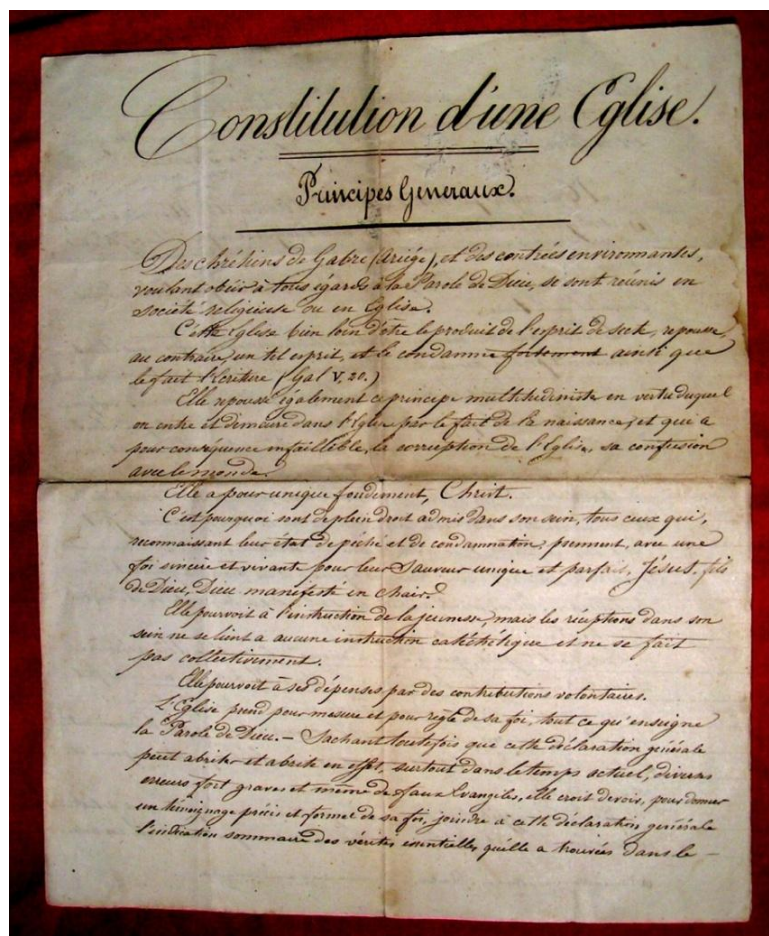 Constitution d'une Eglise.
Principes Generaux.
Des chrétiens de Gabre (Ariège), et des contrées environnantes,
voulant obéir à tous égards à la Parole de Dieu, se sont réunis en
société religieuse ou en Eglise.
Cette Eglise bien loin d'être le produit de l'esprit de secte, repousse,
au contraire, un tel esprit, et le condamne fortement ainsi que
le fait l'Ecriture (Gal V, 20.)
Elle repousse également ce principe multitudiniste en vertu duquel
on entre et demeure dans l'Eglise par le fait de la naissance, et qui a
pour conséquence infaillible, la corruption de l'Eglise, sa confusion
avec le monde.
Elle a pour unique fondement, Christ.
C'est pourquoi sont de plein droit admis dans son sein, tous ceux qui,
reconnaissant leur état de péché et de condamnation, prennent, avec une
foi sincère et vivante pour leur Sauveur unique et parfait, Jésus, fils
de Dieu, Dieu manifesté en chair.
Elle pourvoit à l'instruction de la jeunesse, mais les réceptions dans son
sein ne se lient a aucune instruction catéchétique et ne se fait
pas collectivement.
Elle pourvoit à ses dépenses, par des contributions volontaires.
L'Eglise prend pour mesure et pour règle de sa foi, tout ce qu'enseigne
la Parole de Dieu. — Sachant toutefois que cette déclaration générale
peut abriter et abrite en effet, surtout dans le temps actuel, diverses
erreurs fort graves et même de faux Evangiles, elle croit devoir, pour donner
un témoignage précis et formel de sa foi, joindre à cette déclaration générale
l'indication sommaire des vérités essentielles, qu'elle a trouvées dans le —